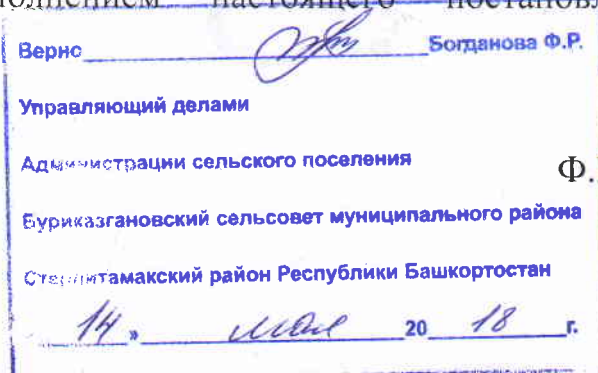 настоящего
Верно Богданова Ф.Р.
Управляющий делами
Администрации сельского поселения
Ф.
Буриказгановский сельсовет муниципального района
Стерлитамакский район Республики Башкортостан
14 » мая 20 18 г.